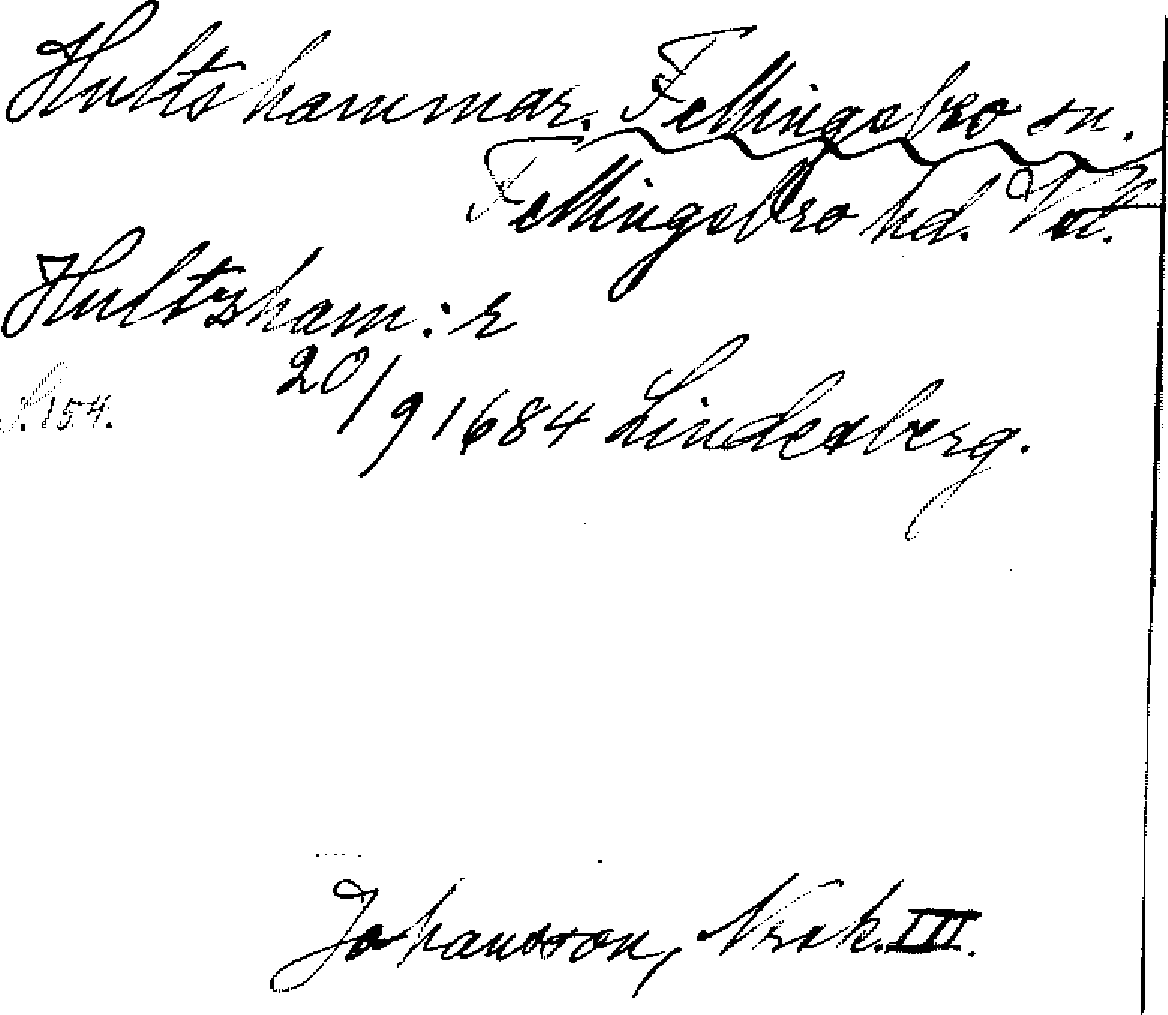 Hultshammar. Fellingsbro sn.
Fellingsbro hd. Vstl.
Hultzham:r
S. 154. 20/9 1684 Lindesberg.
Johansson, Nrsk. III.